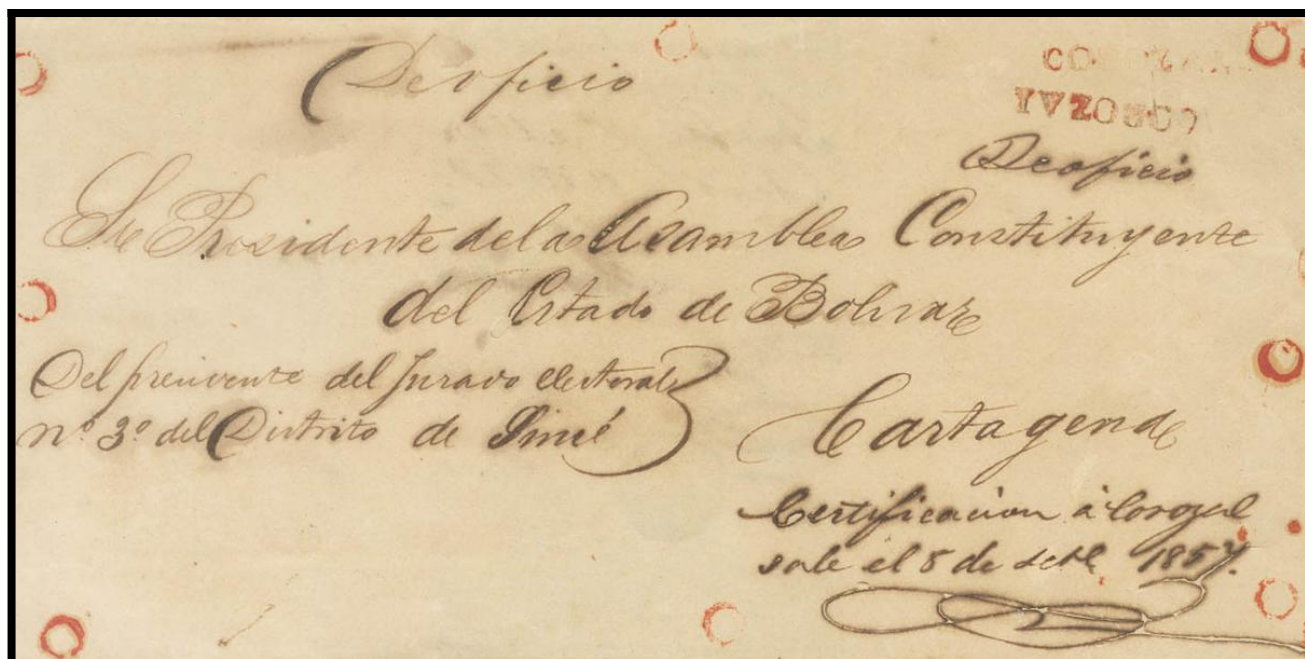 De oficio
COROZAL
De oficio
Sr Presidente de la Asamblea Constituyente
del Estado de Bolivar
Del presidente del Jurado electoral
nº 3º del Distrito de Sincé
Cartagena
Certificacion á Corozal
sale el 8 de setE 1857.